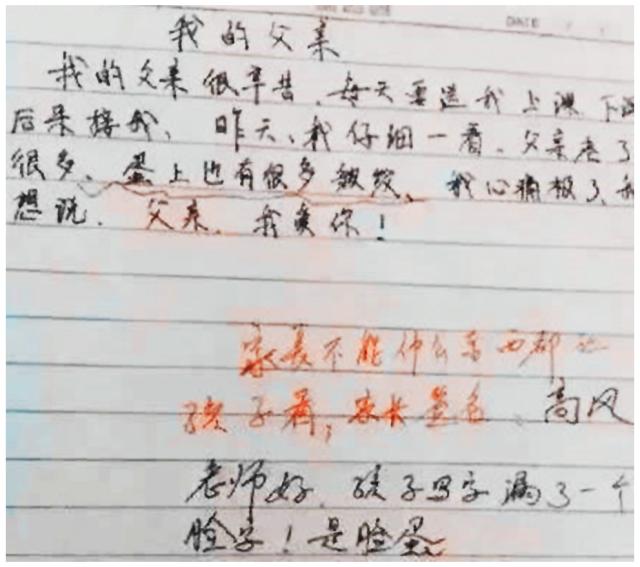 DATE
我的父亲
我的父亲很辛苦、每天要送我上课 下课
后来接我、昨天、我仔细一看、父亲老了
很多、蛋上也有很多皱纹、我心痛极了、我
想说、父亲、我爱你!
家长不能什么东西都让
孩子看, 家长签名、高风
老师好、孩子写字漏了一个
脸字!是脸蛋